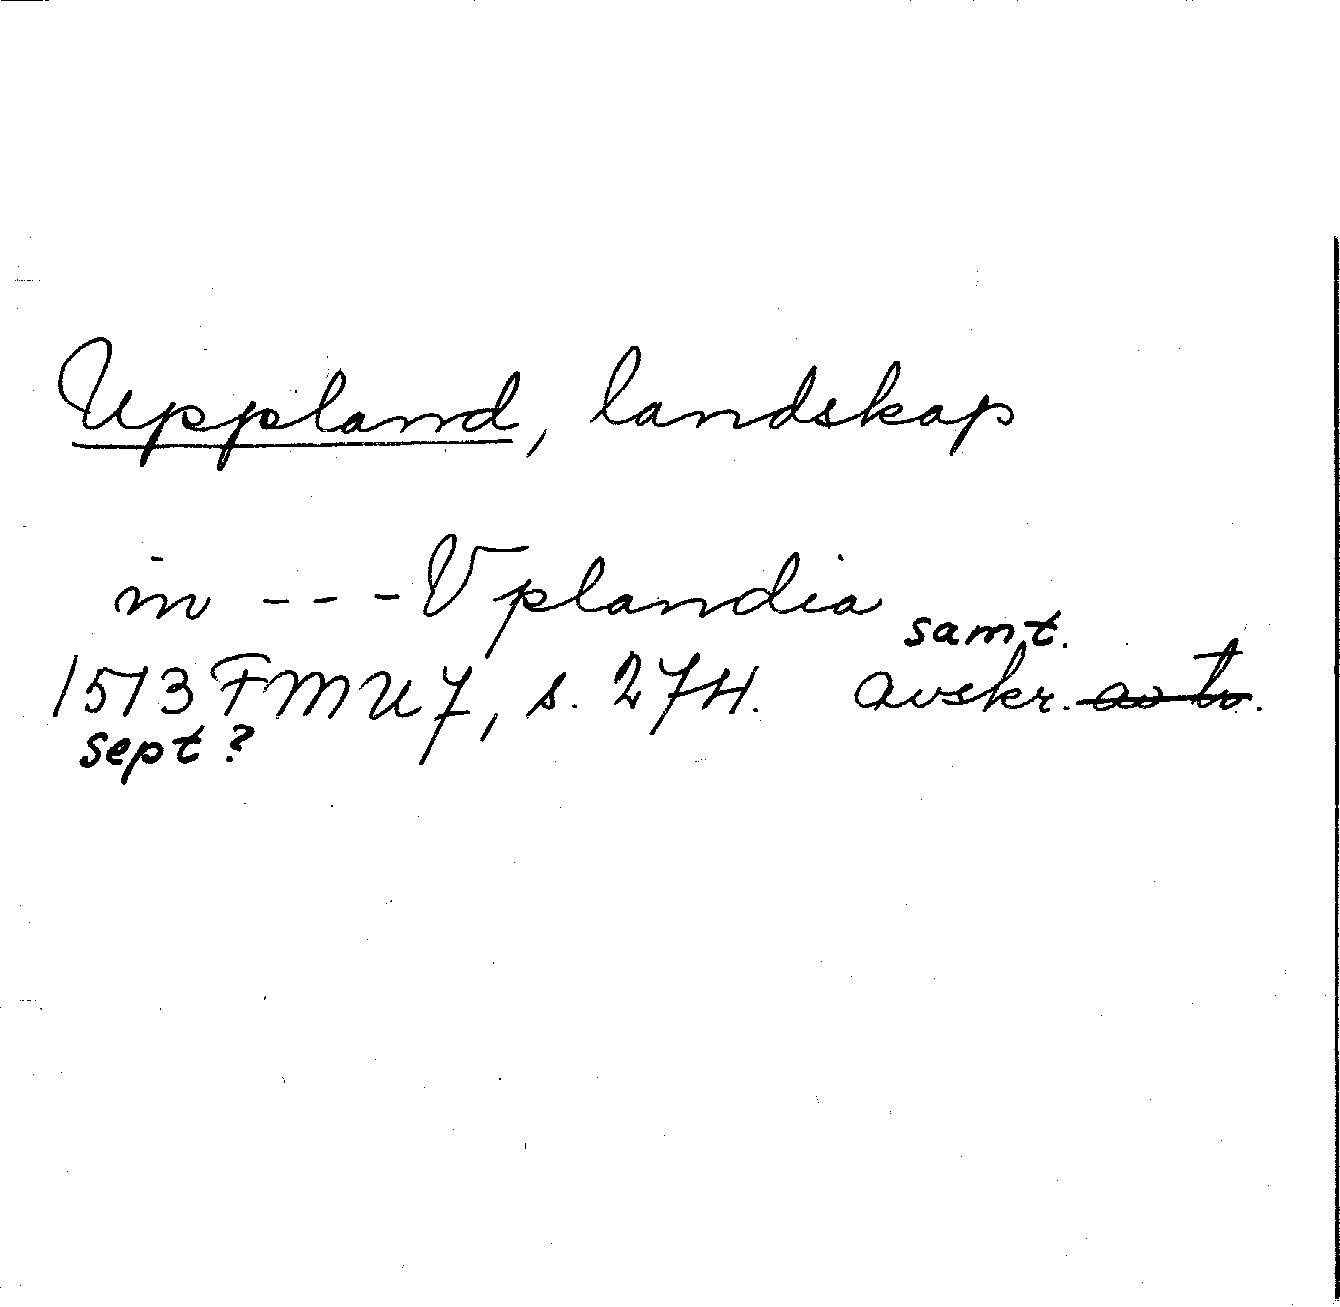 Uppland, landskap
in - - - Vplandia
samt.
1513 FMU 7, s. 274. avskr.
sept?